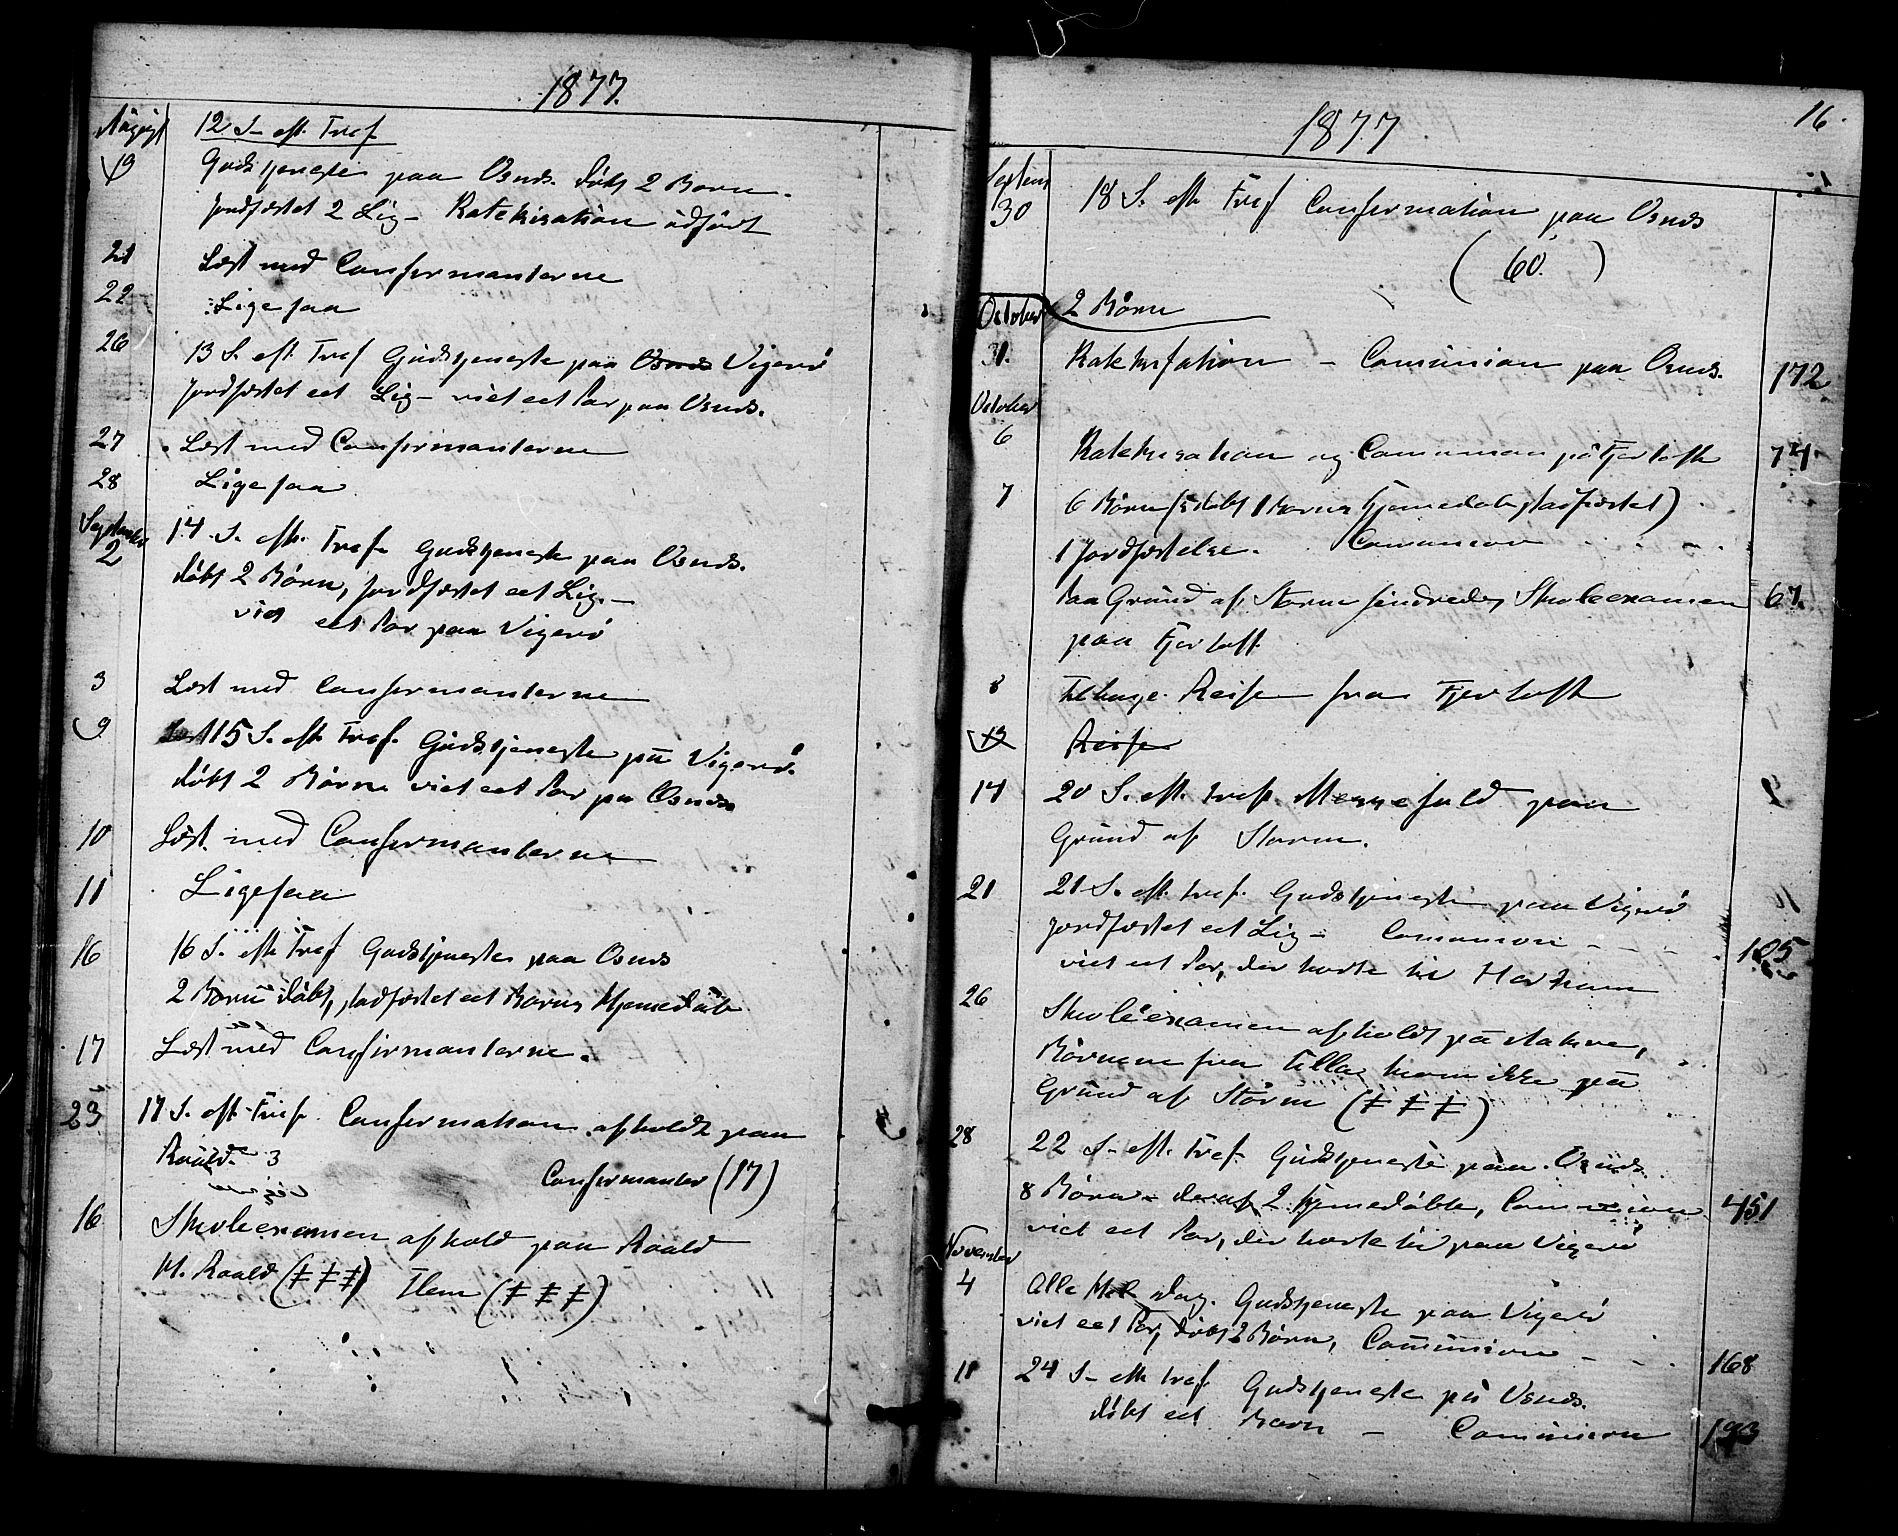 1877.
August 12 S. eft. Tref
19 Gudstjeneste paa Osnæs. døbt 2 Børn.
Jordfæstet 2 Lig - Katekisation udført
21 Læst med Confirmanterne
22 Ligesaa
26 13 S. eft. Tref Gudstjeneste paa Osnæs Vigerø
Jordfæstet eet Lig - viet eet Par paa Osnæs.
27 Læst med Confirmanterne
28 Ligesaa
September 14. S. eft. Tref. Gudstjeneste paa Osnæs.
2 døbt 2 Børn, jordfæstet eet Lig. -
viet eet Par paa Vigerø
3 Læst med Confirmanterne
9 15 S. eft Tref. Gudstjeneste på Vigerø.
døbt 2 Børn viet eet Par på Osnæs
10 Læst med Confirmanterne
11 Ligesaa
16 16 S. eft Tref Gudstjeneste paa Osnæs
2 Børn døbt, stadfæstet eet Barns Hjemedåb
17 Læst med Confirmanterne.
23 17 S. eft Tref. Confirmation afholdt paa
Roald. 3 Confirmanter (17)
16 Skoleexamen afhold paa Roald
N. Roald (ǂ ǂ ǂ) Flem (ǂ ǂ ǂ)
16.
1877
Septem
30 18 S. eft Tref Confirmation paa Osnæs
(60.)
October 2 Børn
31. Katekisation - Comunion paa Osnæs. 172
October
6 Katekisation og Comunion på Fjørtoft 74
7 6 Børn (5 døbt 1 Barns Hjemedåb stadfæstet)
1 Jordfæstelse. Comunion
Paa Grund af Storm hindredes Skoleexamen 67.
paa Fjørtoft.
8 Tilbage Reise fra Fjørtoft
13 Reise
14 20 S. eft. Tref. Messefald paa
Grund af Storm.
21 21 S. eft. Tref. Gudstjeneste paa Vigerø
Jordfæstet eet Lig - Comunion - - - 105
viet eet Par, der hørte til Harham
26 Skoleexamen afholdt på
Børnene fra Ulla kom ikke på
Grund af Storm (ǂ ǂ ǂ)
28 22 S. eft. Tref. Gudstjeneste paa Osnæs
8 Børn - deraf 2 hjemedøbte, Comunion 451
viet eet Par, der hørte til paa Vigerø
November
4 Alle Hel. Dag. Gudstjeneste paa Vigerø
viet eet Par, døbt 2 Børn, Comunion - - 168
11 24 S. eft Tref. Gudstjeneste på Osnæs.
døbt eet Barn - Comunion 193